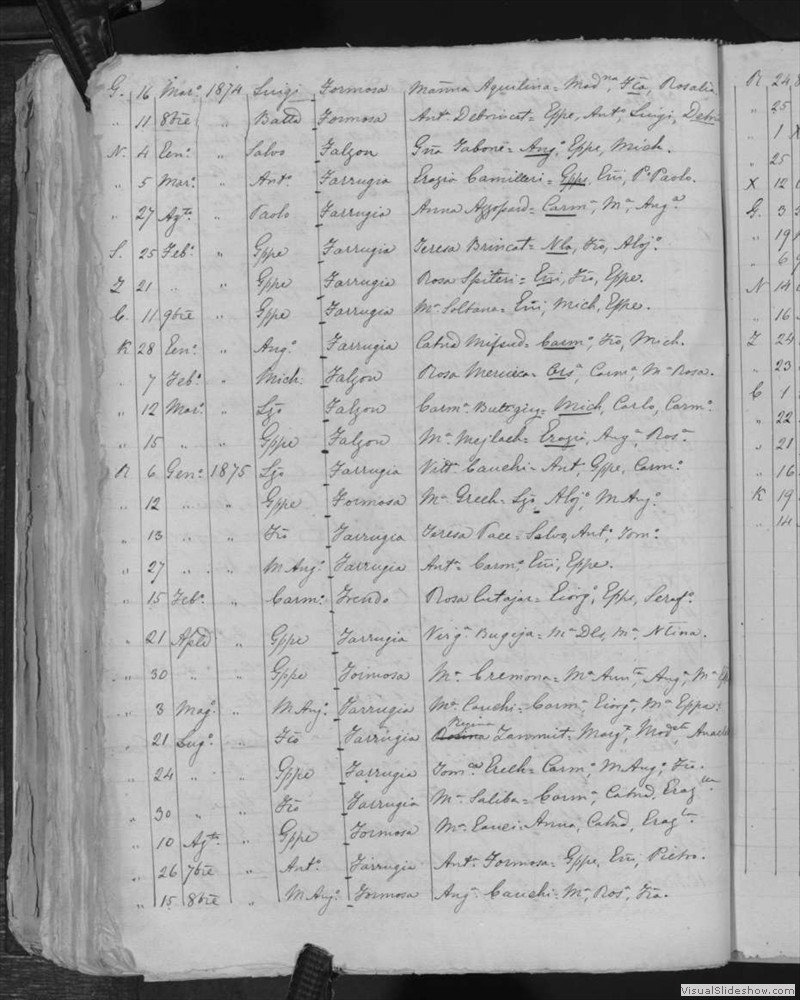 G. 16 Mar.o 1874 Luigi Formosa Manna Aquilina = Mad.na, Fca, Rosalia
" 11 8bre " Batta Formosa Ant.a Debrincat = Gppe, Ant.o, Luigi,
N. 4 Gen.o " Salvo Falzon Gña Tabone = Ang.o, Gppe, Mich.
" 5 Mar.o " Ant.o Farrugia Grazia Camilleri = Gppe, P. Paolo.
" 27 Ag.to " Paolo Farrugia Anna Azzopard = Carm.a, M.a, Ang.a
S. 25 Feb.o " Gppe Farrugia Teresa Brincat = Nla, Fco, Aloj.o
Z 21 " " Gppe Farrugia Rosa Spiteri = Gppe.
C. 11 9bre " Gppe Farrugia M.a Soltana = Mich, Gppe.
K 28 Gen.o " Ang.o Farrugia Catna Mifsud = Carm.o, Fco, Mich.
" 7 Feb.o " Mich. Falzon Rosa Mercieca = Carm.a, M.a Rosa.
" 12 Mar.o " Lzo Falzon Carm.a Buttigieg = Mich, Carlo, Carm.o
" 15 " " Gppe Falzon M.a Mejlach = Grazia, Ang.a, Ros.a
R 6 Gen.o 1875 Lzo Farrugia Vitt.a Cauchi = Ant. Gppe, Carm.o
" 12 " " Gppe Formosa M.a Grech = Lzo, Aloj.o, M Ang.o
" 13 " " Fco Farrugia Teresa Pace = Salvo, Ant.o, Tom.o
" 27 " " M Ang.o Farrugia Ant.a Gppe.
" 15 Feb.o " Carm.o Frendo Rosa Cutajar = Giorg.o, Gppe, Seraf.o
" 21 Aple " Gppe Farrugia Verg.a Bugeja = M.a Dls, M.a Ntina.
" 30 " " Gppe Formosa M.a Cremona = M.a Annta, Ang.a, M.a
" 3 Mag.o " M Ang.o Farrugia M.a Cauchi = Carm.a Giorg.a, M.a Gppa.
" 21 Lug.o " Fco Farrugia Regina Zammit = Marg.ta, Mod.ta
" 24 " " Gppe Farrugia Tom.a Grech = Carm.a, M Ang.a, Fca.
" 30 " " Fco Farrugia M.a Saliba = Carm.a, Catna, Graz.lla
" 10 Ag.to " Gppe Formosa M.a Gauci = Anna, Catna, Graz.la
" 26 7bre " Ant.o Farrugia Ant.a Formosa = Gppe, Pietro.
" 15 8bre " M Ang.o Formosa Ang.a Cauchi = M.a, Ros.a, Fca.
R 24
" 25
" 1
" 25
X 12
G. 3
" 19
" 6
N 14
" 16
Z 24
" 23
C 1
" 22
" 21
" 16
K 19
" 14
VisualSlideshow.com